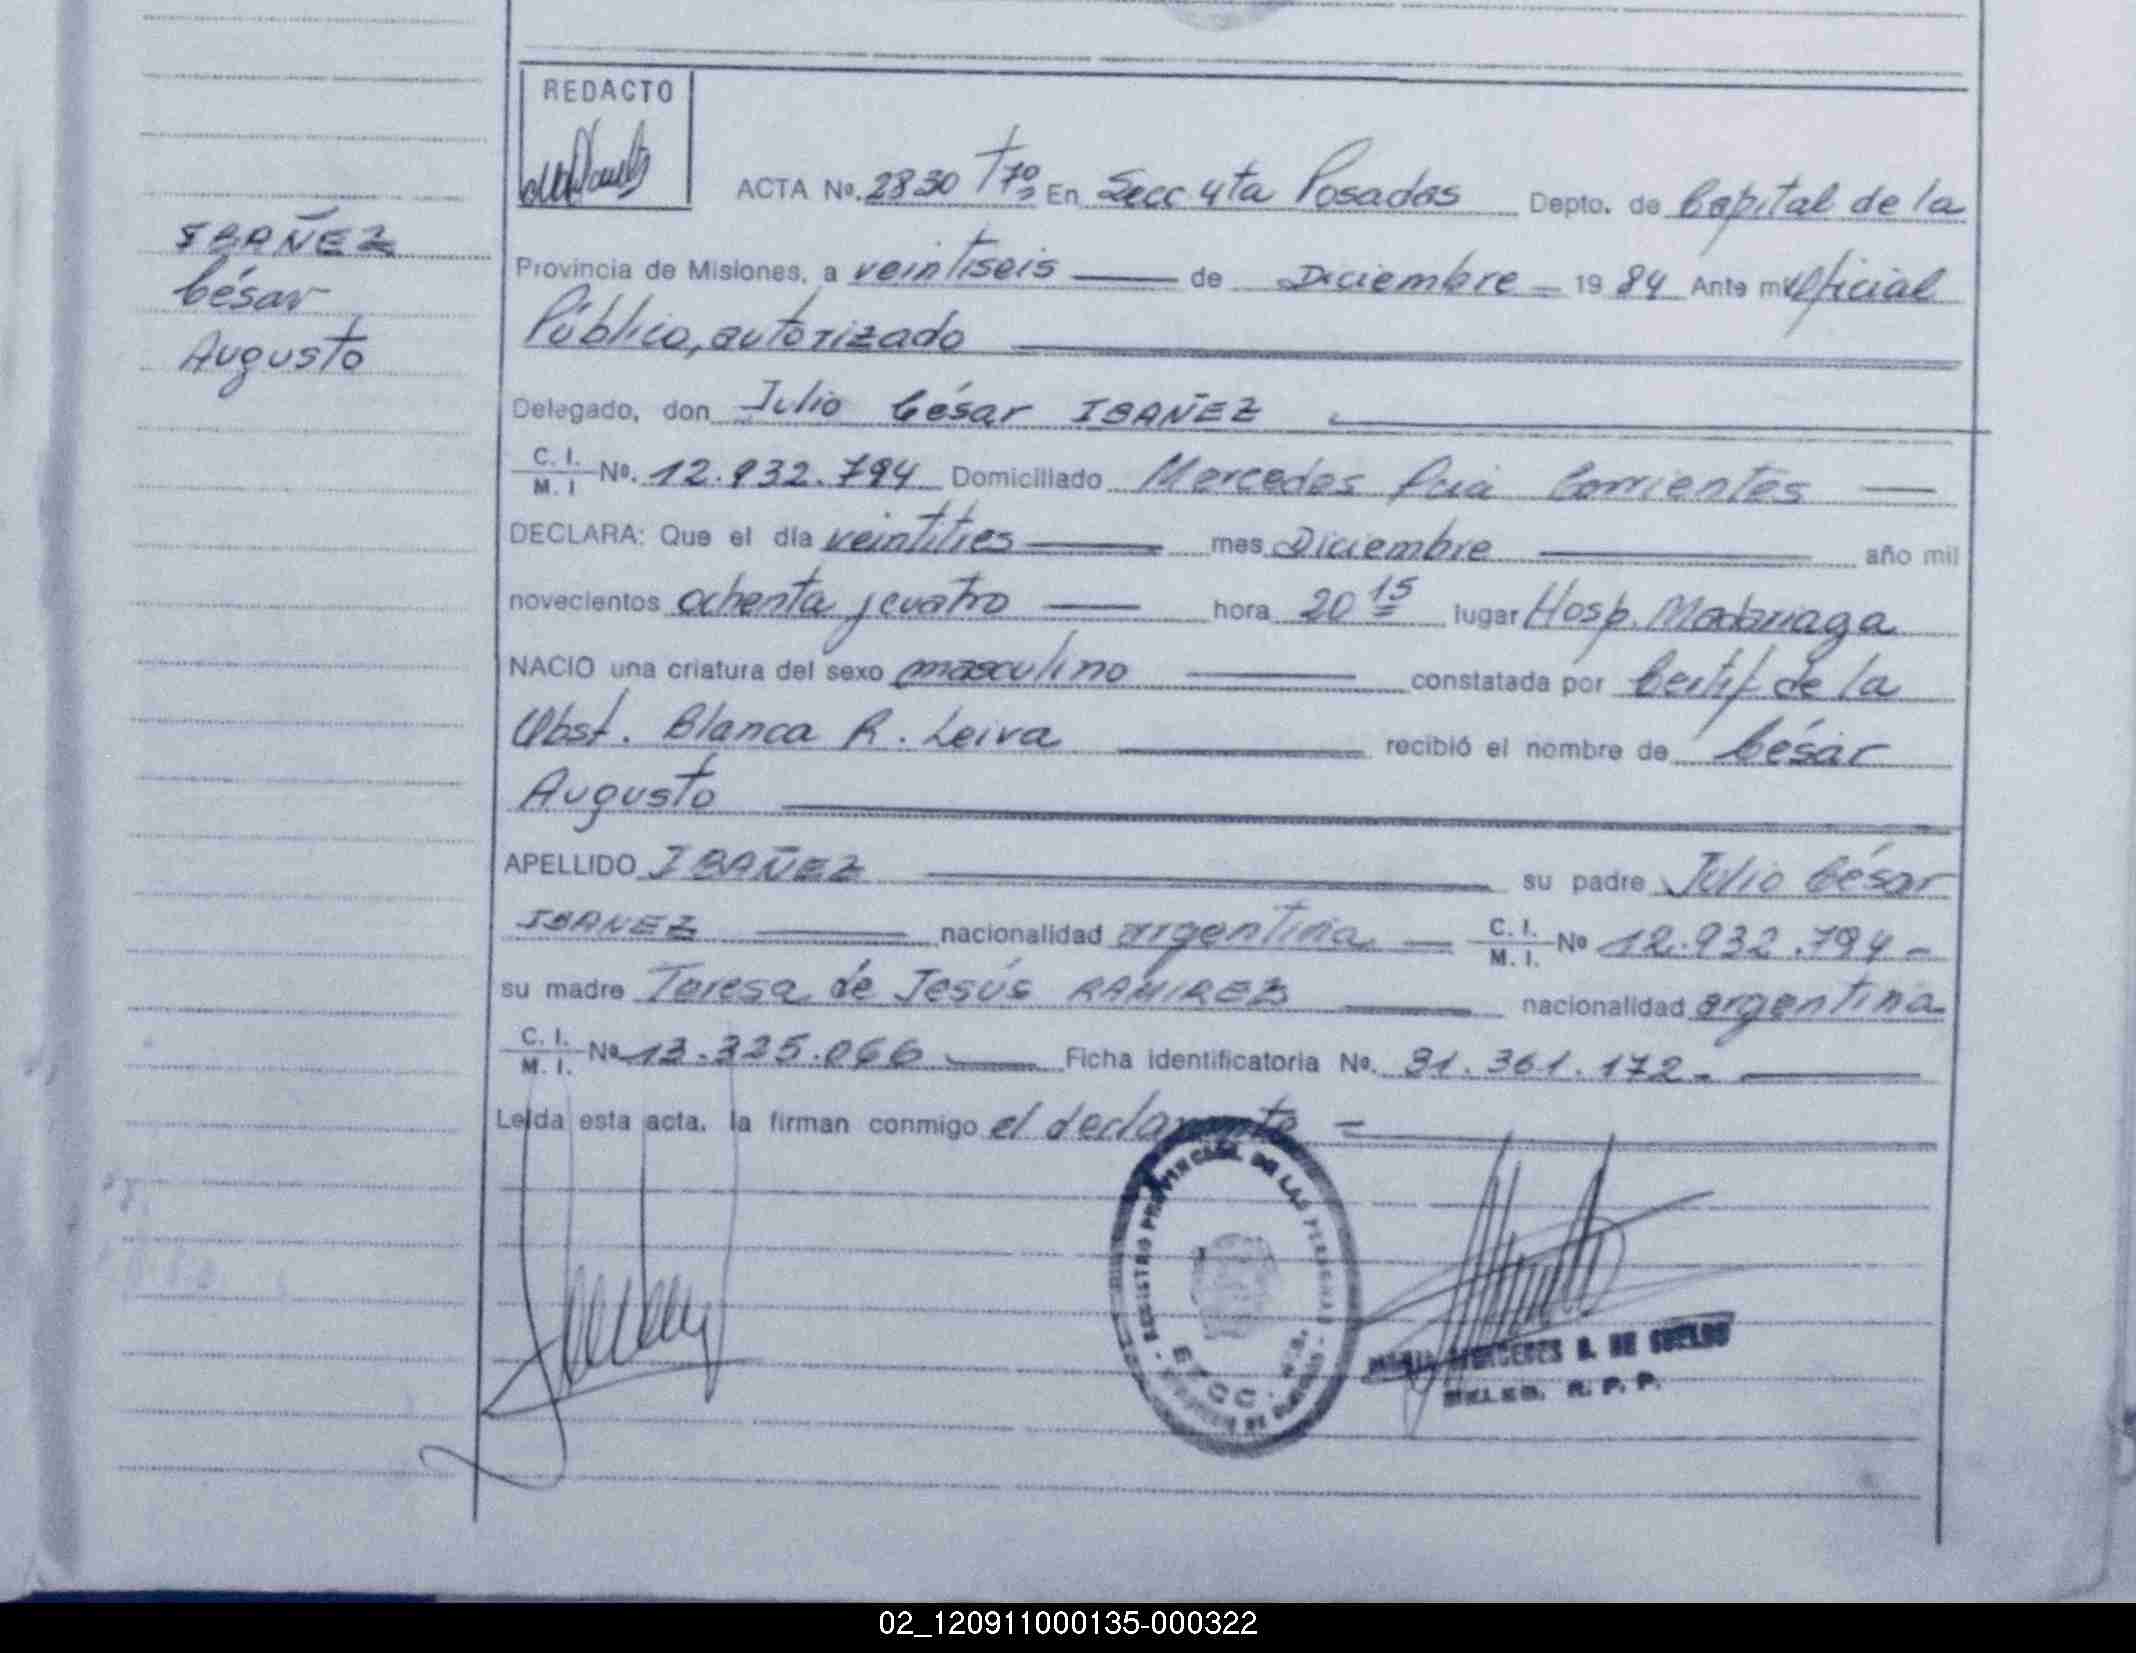 REDACTO
ACTA No. 2830 Tº 7º En Secc 4ta Posadas Depto. de Capital de la
IBAÑEZ
César
Augusto
Provincia de Misiones, a veintiseis de Diciembre 1984 Ante mi Oficial
Público, autorizado
Delegado, don Julio César IBAÑEZ
C. I. M. I No. 12.932.794 Domiciliado Mercedes Pcia Corrientes
DECLARA: Que el día veintitres mes Diciembre año mil
novecientos ochenta y cuatro hora 20 15 lugar Hosp. Madariaga
NACIO una criatura del sexo masculino constatada por Certif de la
Obst. Blanca R. Leiva recibió el nombre de César
Augusto
APELLIDO IBAÑEZ su padre Julio César
IBAÑEZ nacionalidad argentina C. I. M. I. No 12.932.794
su madre Teresa de Jesús RAMIREZ nacionalidad argentina
C. I. M. I. No 13.325.066 Ficha identificatoria No. 31.361.172
Leída esta acta, la firman conmigo el declarante
REGISTRO PROVINCIAL DE LAS PERSONAS
MERCEDES DE
DELEG. R. P. P.
02_120911000135-000322